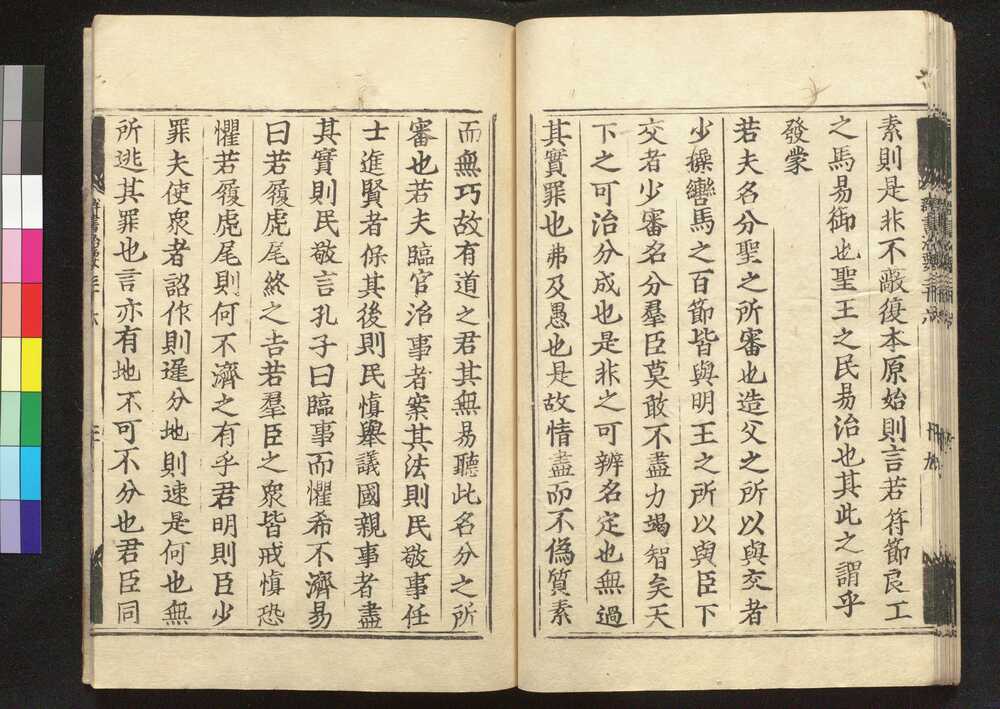 素則是非不蔽復本原始則言若符節良工
之馬易御也聖王之民易治也其此之謂乎
發蒙
若夫名分聖之所審也造父之所以與交者
少操轡馬之百節皆與明王之所以與臣下
交者少審名分羣臣莫敢不盡力竭智矣天
下之可治分成也是非之可辨名定也無過
其實罪也弗及愚也是故情盡而不偽質素
而無巧故有道之君其無易聽此名分之所
審也若夫臨官治事者案其法則民敬事任
士進賢者保其後則民慎舉議國親事者盡
其實則民敬言孔子曰臨事而懼希不濟易
曰若履虎尾終之吉若羣臣之衆皆戒慎恐
懼若履虎尾則何不濟之有乎君明則臣少
罪夫使衆者詔作則遲分地則速是何也無
所逃其罪也言亦有地不可不分也君臣同
羣書治要三十六